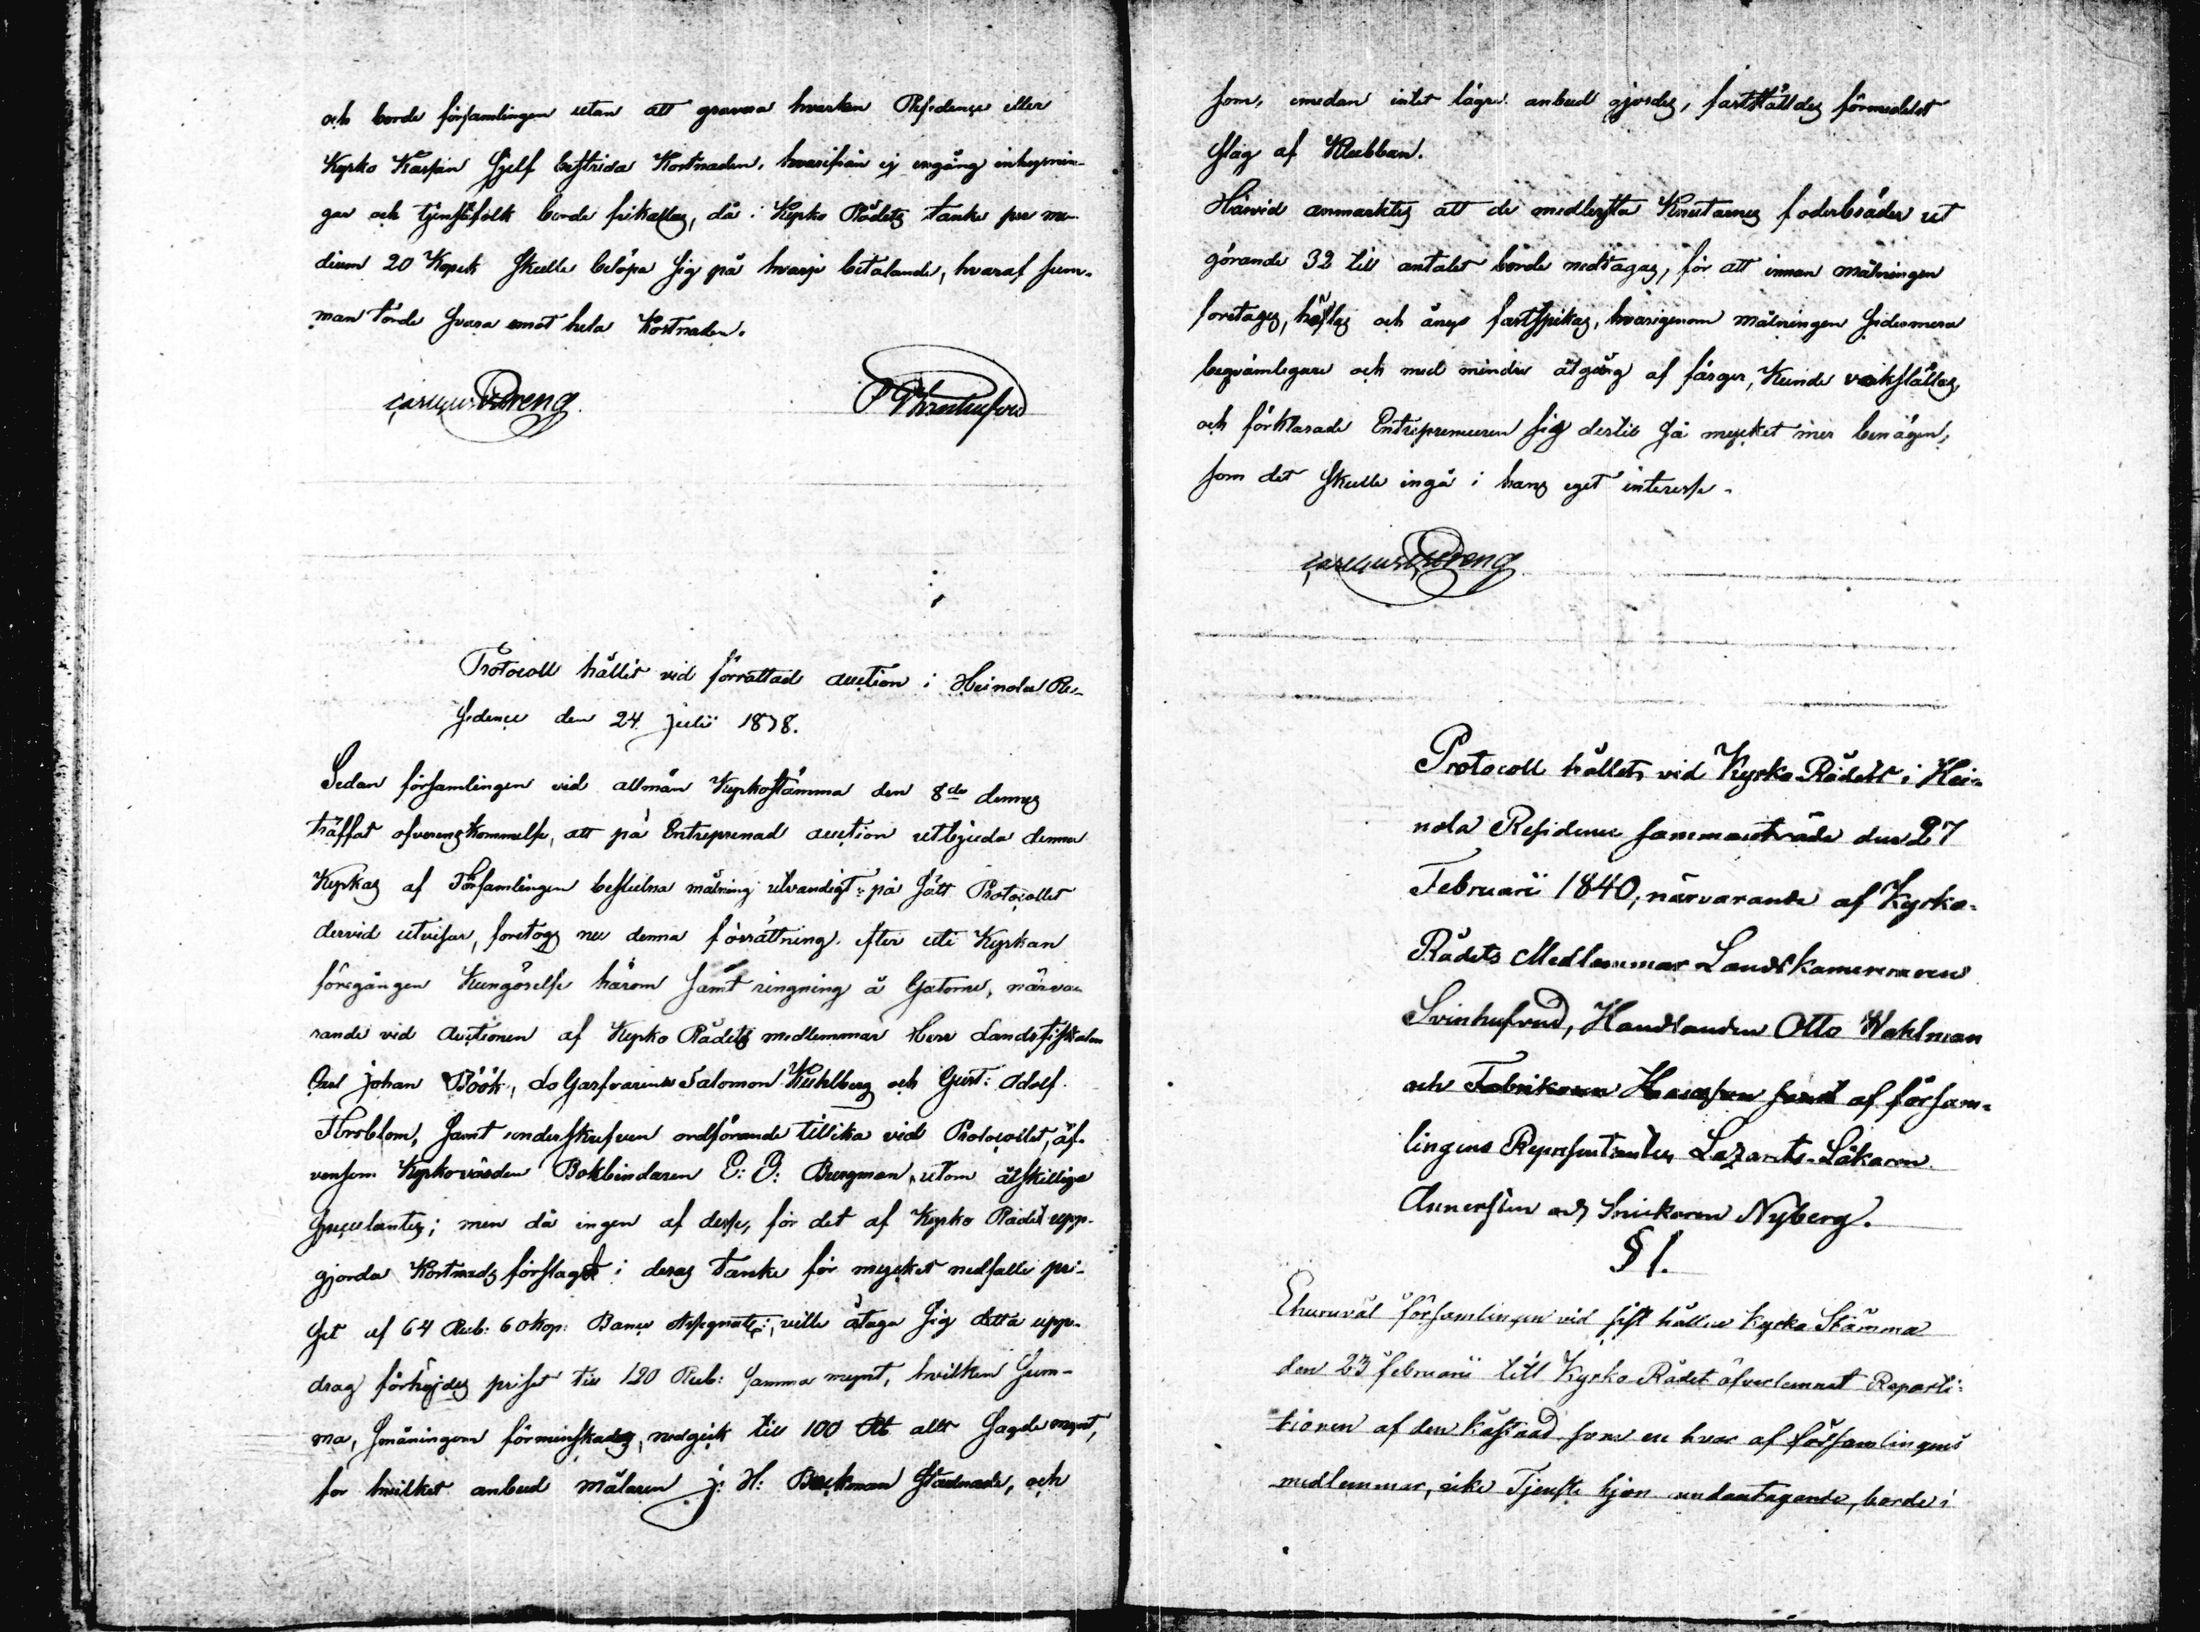 och borde församlingen utan att gravera hvarken Residence eller
Kyrko Kassan sjelf bestrida Kostnaden, hvarifrån ej engång inhysnin-
gar och tjenstefolk borde frikallas, då i Kyrko Rådets tanke per me-
dium 20 Kopek skulle belöpa sig på hvarje betalande, hvaraf sum-
man torde svara emot hela Kostnaden.
Protocoll hållit vid förrättad auction i Heinola Re-
sidence den 24 Julii 1838.
Sedan församlingen vid allmän Kyrkostämma den 8de dennes
träffat öfverenskommelse, att på Entreprenad auction utbjuda denna
Kyrkas af Församlingen beslutna målning utvändigt: på sätt Protocollet
dervid utvisar, företogs nu denna förrättning efter uti Kyrkan
föregången Kungörelse härom samt ringning å Gatorne, närva-
rande vid Auctionen af Kyrko Rådets medlemmar Herr Landsfiskalen
Carl Johan Böök, LoGarfvarene Salomon Kuhlberg och Gust: Adolf
Floblom, samt underskrefven ordförande tillika vid Protocollet, äf-
vensom Kyrkovärden Bokbindaren E: G: Bergman, utom åtskillige
speculanter; men då ingen af desse, för det af Kyrko Rådet upp-
gjorda Kostnads förslaget i deras tanke för mycket nedsatte pri-
set af 64 Rub: 60 kop: Banco Assignate:, ville åtaga sig detta upp-
drag förhöjdes priset till 120 Rub: samma mynt, hvilken Sum-
ma, småningom förminskades, nedgick till 100 Rb allt sagde mynt,
för hvilket anbud målaren J: H: Beckman stadnade, och
som, emedan intet lägre anbud gjordes, fastställdes förmedelst
slag af Klubban.
Härvid anmärktes att de medlersta Knutarnes foderbräder ut
görande 32 till antalet borde nedtagas, för att innan målningen
företages, höflas och ånyo fastspikas, hvarigenom målningen sidermera
beqvämligare och med mindre åtgång af färger, Kunde verkställas,
och förklarade Entrepreneuren sig dertill så mycket mer benägen,
som det skulle ingå i hans eget interesse.
Protocoll hållet, vid Kyrko-Rådets i Hei-
nola Residence sammanträde den 27
Februarii 1840, närvarande af Kyrko-
Rådets Medlemmar Landskamereraren
Svinhufvud, Handlanden Otto Wahlman
och Fabrikoren samt af försam-
lingens Representanter Lazarets-Läkaren
och Snickaren Nyberg.
§ 1.
Ehuruväl församlingen vid sist hållne Kyrko Stämma
den 23 februarii till Kyrko Rådet öfverlemnat Reparti-
tionen af den kåstnad som en hvar af församlingens
medlemmar, icke Tjenste hjon undantagande, borde i